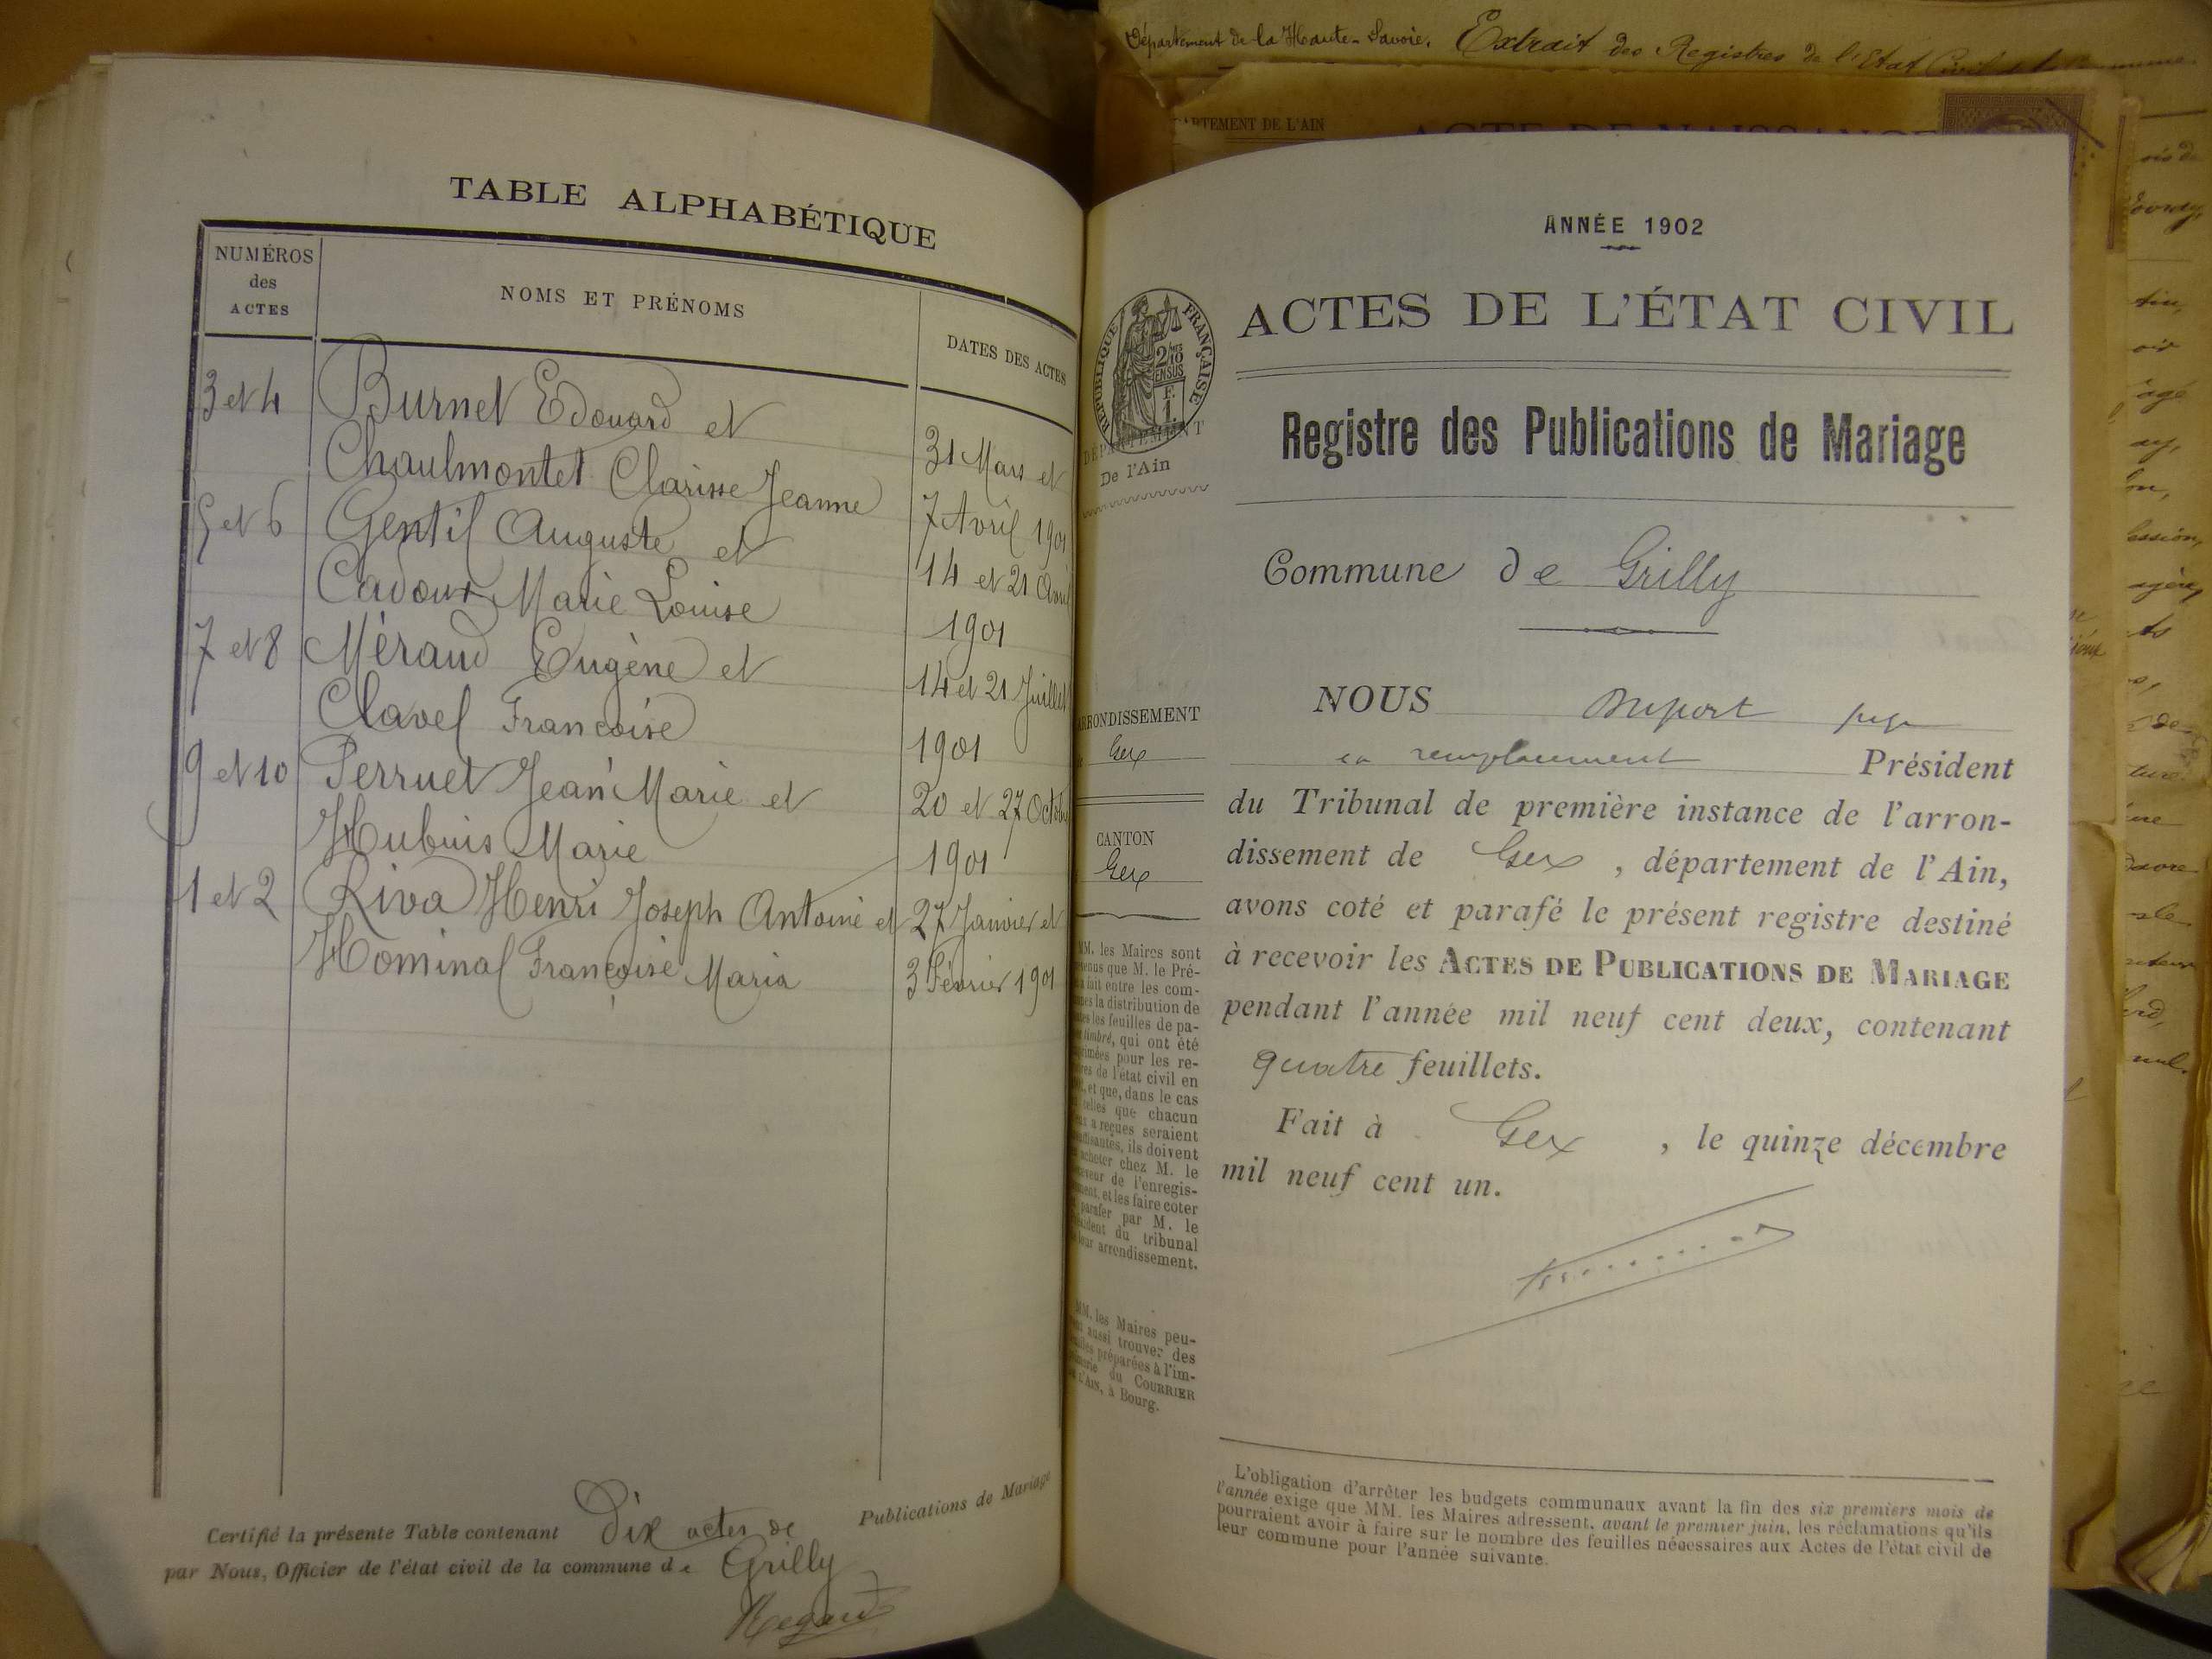 Département de la Haute-Savoie. Extrait des Registres de l'Etat Civil
TEMENT DE L'AIN
ACTE DE NAISSANCE
TABLE ALPHABÉTIQUE
NUMÉROS
des
ACTES
NOMS ET PRÉNOMS
DATES DES ACTES
3 et 4 Burnet Edouard et
Chaulmontet Clarisse Jeanne
31 Mars et
7 Avril 1901
5 et 6 Gentil Auguste et
Cadoux Marie Louise
14 et 21 Avril
1901
7 et 8 Méraud Eugène et
Clavel Françoise
14 et 21 Juillet
1901
9 et 10 Perruet Jean Marie et
Hubuis Marie
20 et 27 Octobre
1901
1 et 2 Riva Henri Joseph Antoine et
Hominal Françoise Maria
27 Janvier et
3 Février 1901
Certifié la présente Table contenant Dix actes de Publications de Mariage
par Nous, Officier de l'état civil de la commune de Grilly
Regard
ANNÉE 1902
ACTES DE L'ÉTAT CIVIL
RÉPUBLIQUE FRANÇAISE
DÉPARTEMENT
De l'Ain
Registre des Publications de Mariage
Commune de Grilly
ARRONDISSEMENT
Gex
CANTON
Gex
MM. les Maires sont
que M. le Pré-
fait entre les com-
la distribution de
les feuilles de pa-
timbré, qui ont été
pour les re-
de l'état civil en
et que, dans le cas
celles que chacun
a reçues seraient
ils doivent
acheter chez M. le
de l'enregis-
et les faire coter
parafer par M. le
du tribunal
leur arrondissement.
MM. les Maires peu-
aussi trouver des
préparées à l'im-
du COURRIER
DE L'AIN, à Bourg.
NOUS Dupont juge
en remplacement Président
du Tribunal de première instance de l'arron-
dissement de Gex, département de l'Ain,
avons coté et parafé le présent registre destiné
à recevoir les ACTES DE PUBLICATIONS DE MARIAGE
pendant l'année mil neuf cent deux, contenant
quatre feuillets.
Fait à Gex, le quinze décembre
mil neuf cent un.
L'obligation d'arrêter les budgets communaux avant la fin des six premiers mois de
l'année exige que MM. les Maires adressent, avant le premier juin, les réclamations qu'ils
pourraient avoir à faire sur le nombre des feuilles nécessaires aux Actes de l'état civil de
leur commune pour l'année suivante.